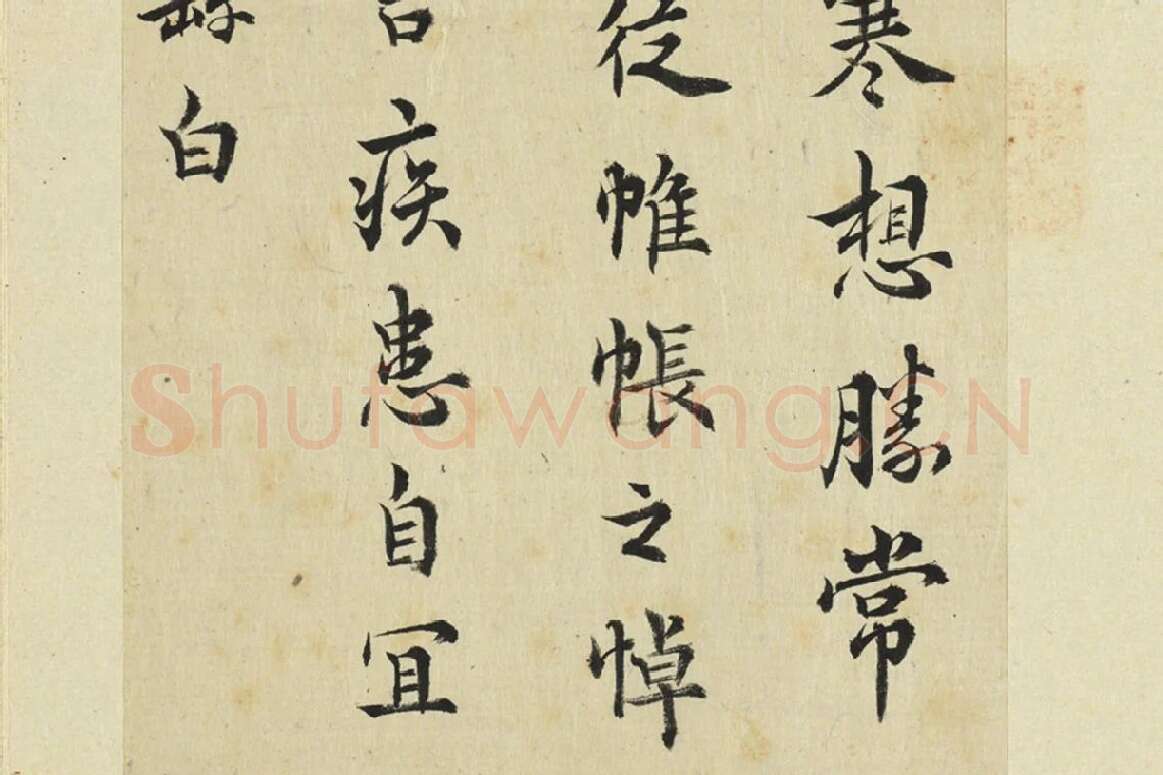 寒想勝常
從帷帳之悼
言疾患自冝
繇白
ShufawangCN